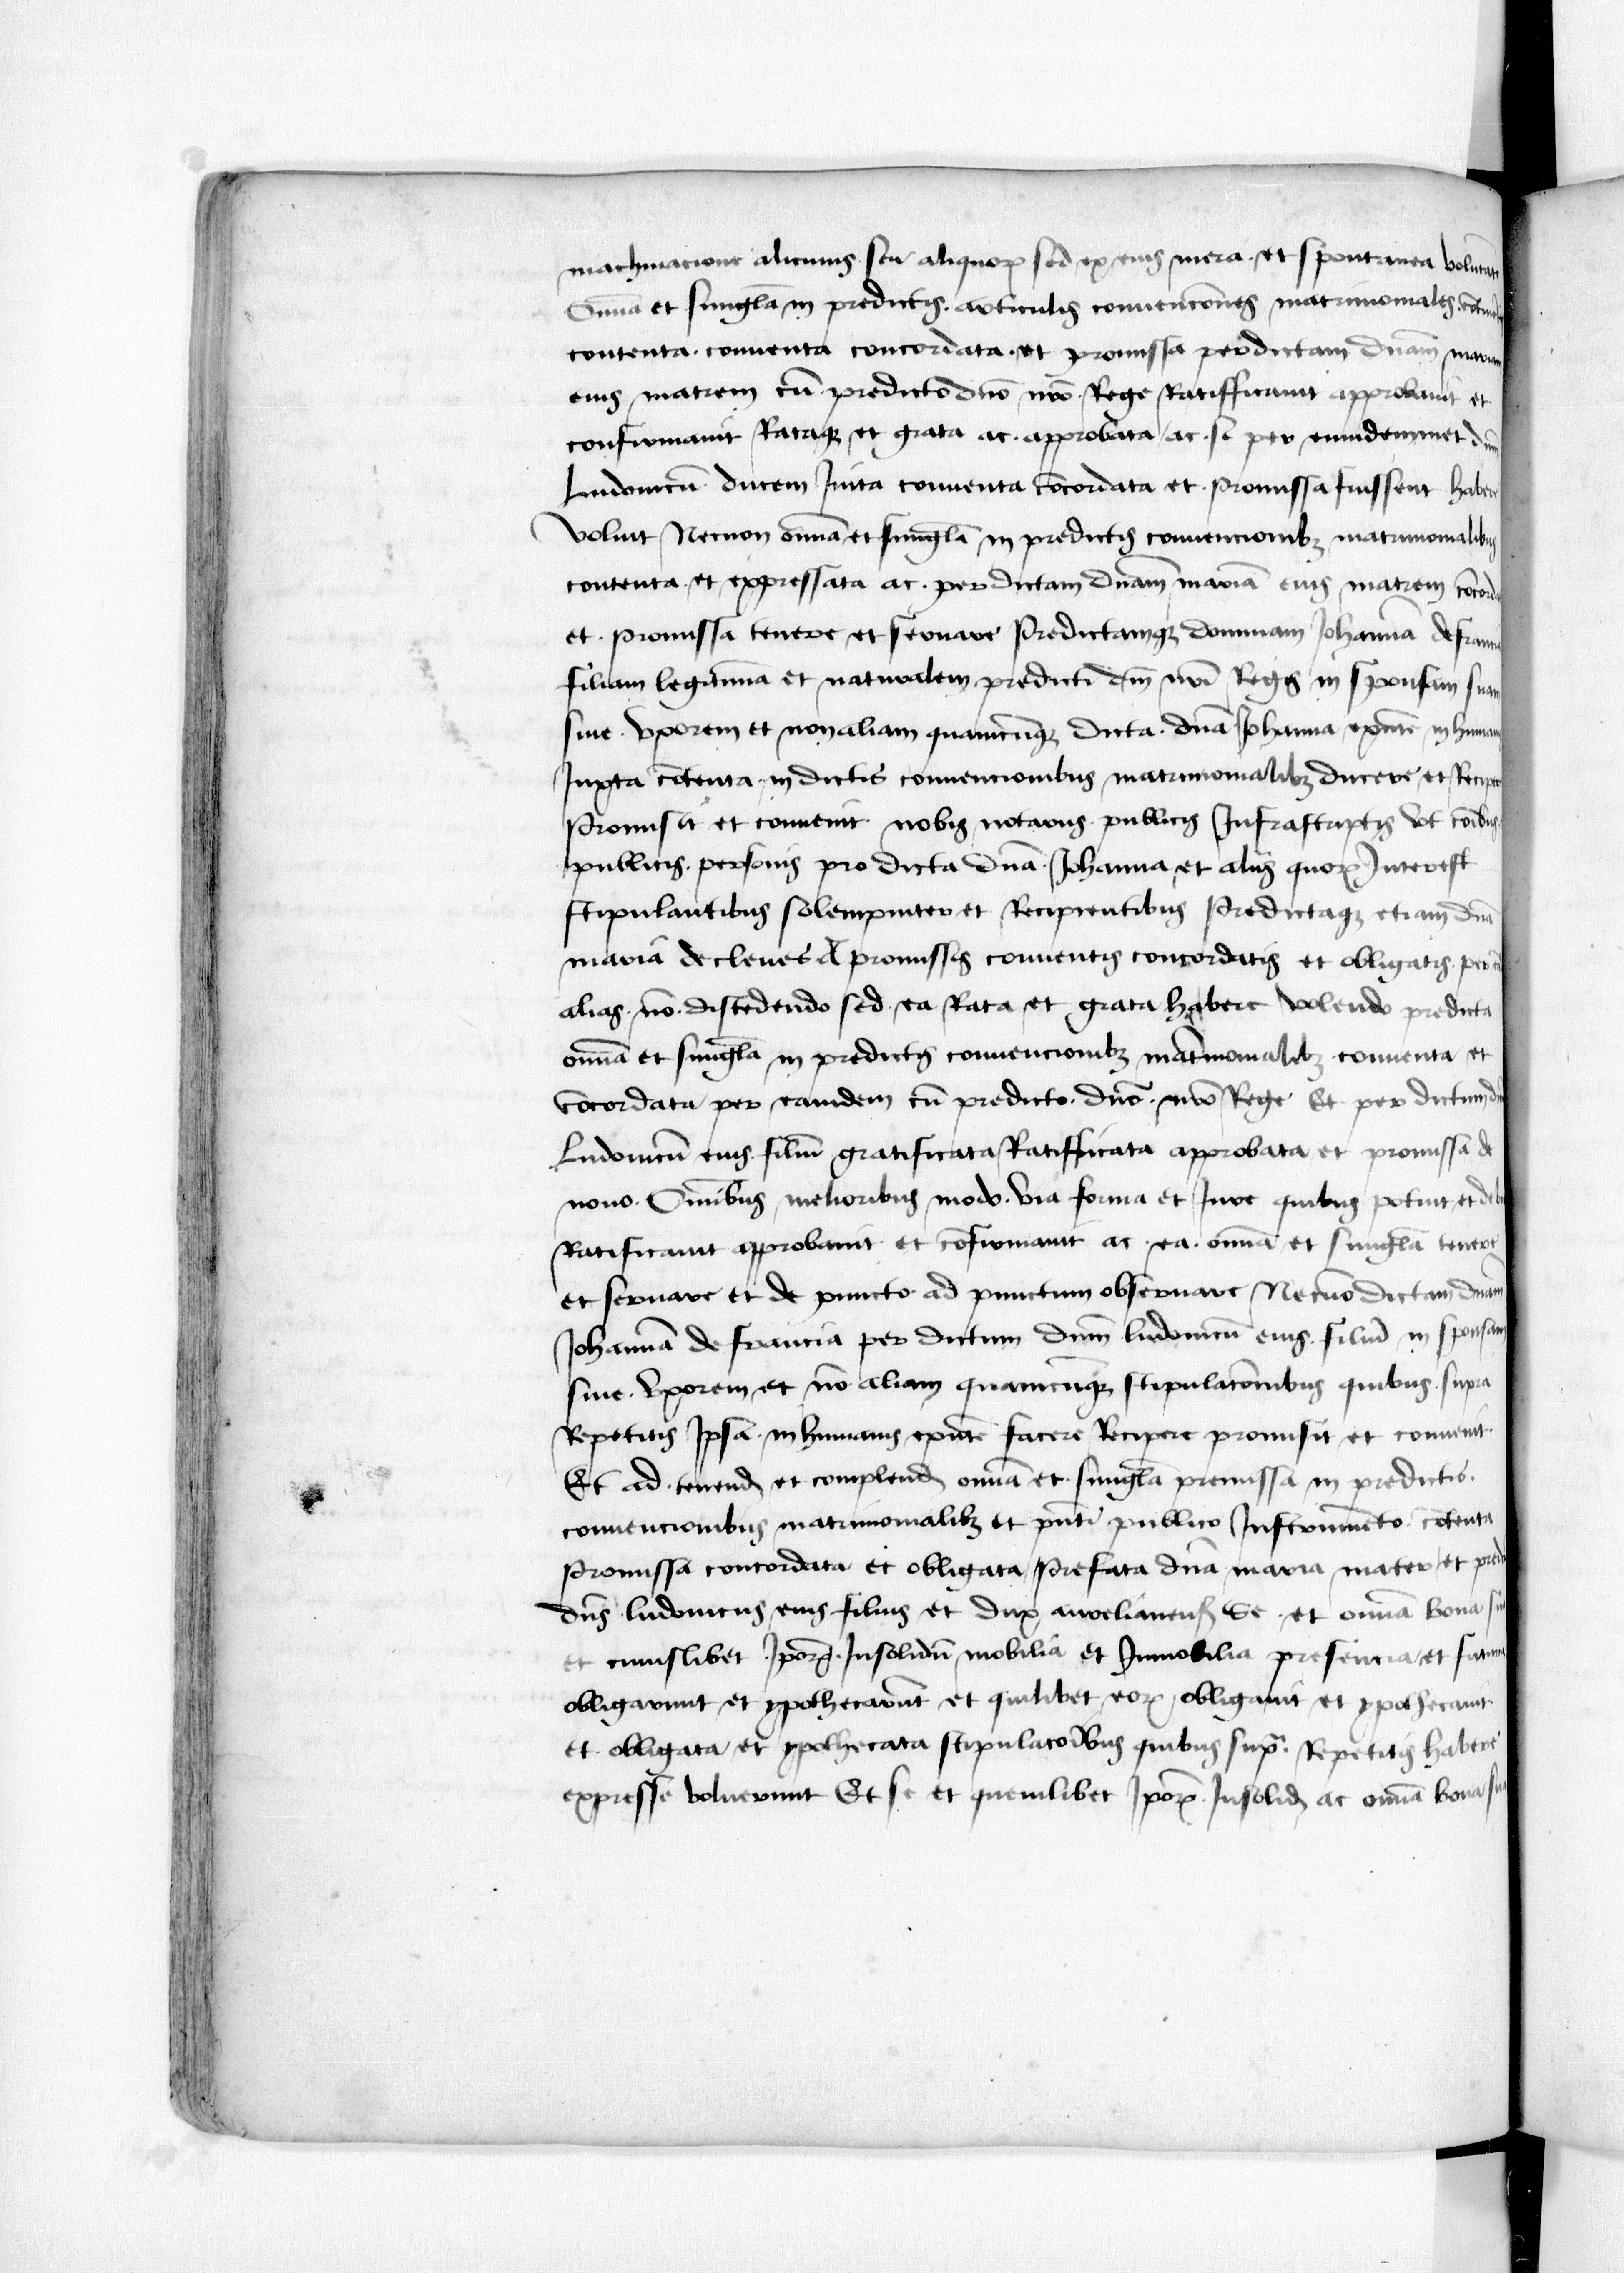 machinacione alicuius seu aliquoꝝ sed ex eius mera et spontanea volūtate
Om̄ia et singl̄a in predictis articulis convencōnes matrimoniales
contenta conventa concordata et promissa per dictam dn̄am mariam
eius matrem cū predicto dn̄o nr̄o Rege Ratifficavit approbavit et
confirmavit Rataqꝫ et grata ac approbata ac si per eundemmet dn̄m
Ludovicū ducem Inita conventa cōcordata et promissa fuissent habere
voluit Necnon om̄ia et singl̄a in predictis convencionibꝫ matrimonialibus
contenta et expressata ac per dictam dn̄am mariā eius matrem
et promissa tenere et servare Predictamqꝫ dominam Johannā de francia
filiam legitimā et naturalem predicti dn̄i nr̄i Regis in sponsam suam
sive uxorem et non aliam quamcūqꝫ dicta dn̄a Johanna exn̄te in humanis
Juxta cōtenta in dictis convencionibus matrimonialibꝫ ducere et Recipere
Promisit et convenit nobis notariis publicis Infrascriptis ut cōibus
publicis personis pro dicta dn̄a Johanna et aliis quoꝝ Interest
stipulantibus solempniter et Recipientibus Predictaqꝫ etiam dn̄a
maria de cleves A promissis conventis concordatis et obligatis per
alias nō discedendo sed ea Rata et grata habere volendo predicta
om̄ia et singl̄a in predictis convencionibꝫ mat̄monialibꝫ conventa et
cōcordata per eamdem cū predicto dn̄o nr̄o Rege Et per dictum dn̄m
Ludovicū eius filiū gratificata Ratifficata approbata et promissa de
novo Om̄ibus melioribus modo via forma et Jure quibus potuit et debuit
Ratificavit approbavit et cōfirmavit ac ea om̄ia et singl̄a tenere
et servare et de puncto ad punctum observare Necnō dictam dn̄am
Johannā de francia per dictum dn̄m ludovicū eius filiū in sponsam
sive uxorem et nō aliam quamcūqꝫ stipulatōnibus quibus supra
Repetitis Ipsa in humanis exn̄te facere Recipere promisit et convenit
Et ad tenend et complend om̄ia et singl̄a premissa in predictis
convencionibus matrimonialibꝫ et pn̄ti publico Instrumento cōtenta
Promissa concordata et obligata Prefata dn̄a maria mater et
dn̄s ludovicus eius filius et dux aurelianeñ Se et om̄ia bona
et cuiuslibet Ip̄oꝝ Insolidū mobilia et Immobilia presencia et futura
obligarunt et ypothecarūt et quilibet eoꝝ obligavit et ypothecavit
et obligata et ypothecata stipulacōibus quibus sup̄ Repetitis habere
expresse voluerunt Et se et quemlibet Ip̄oꝝ Insolid ac om̄ia bona